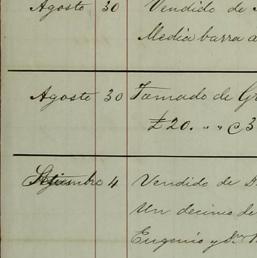 Agosto 30 Vendido de
Media barra a
Agosto 30 Tomado de Gr
£20. " " C3
Setiembre 4 Vendido de D.
Un decimo de
Eugenio y